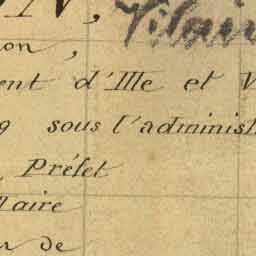 ON, Vilain
ion,
ent d'Ille et V
9 sous l'administ
, Préfet
Maire
n de